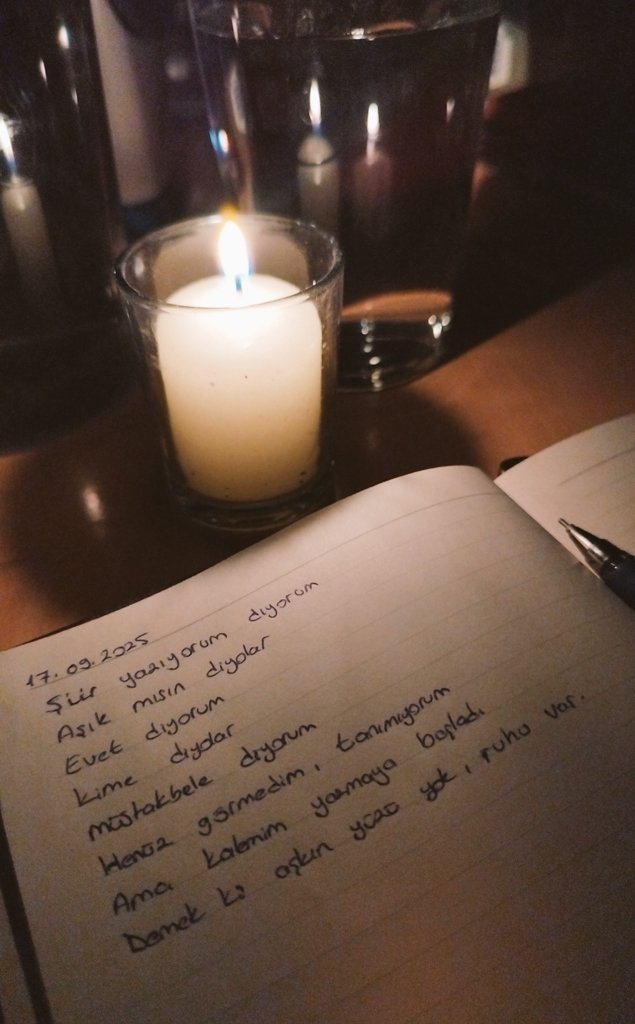 17.09.2025
Şiir yazıyorum diyorum
Aşık mısın diyolar
Evet diyorum
kime diyolar
müstakbele diyorum
Henüz görmedim, tanımıyorum
Ama kalemim yazmaya başladı
Demek ki aşkın yüzü yok, ruhu var.